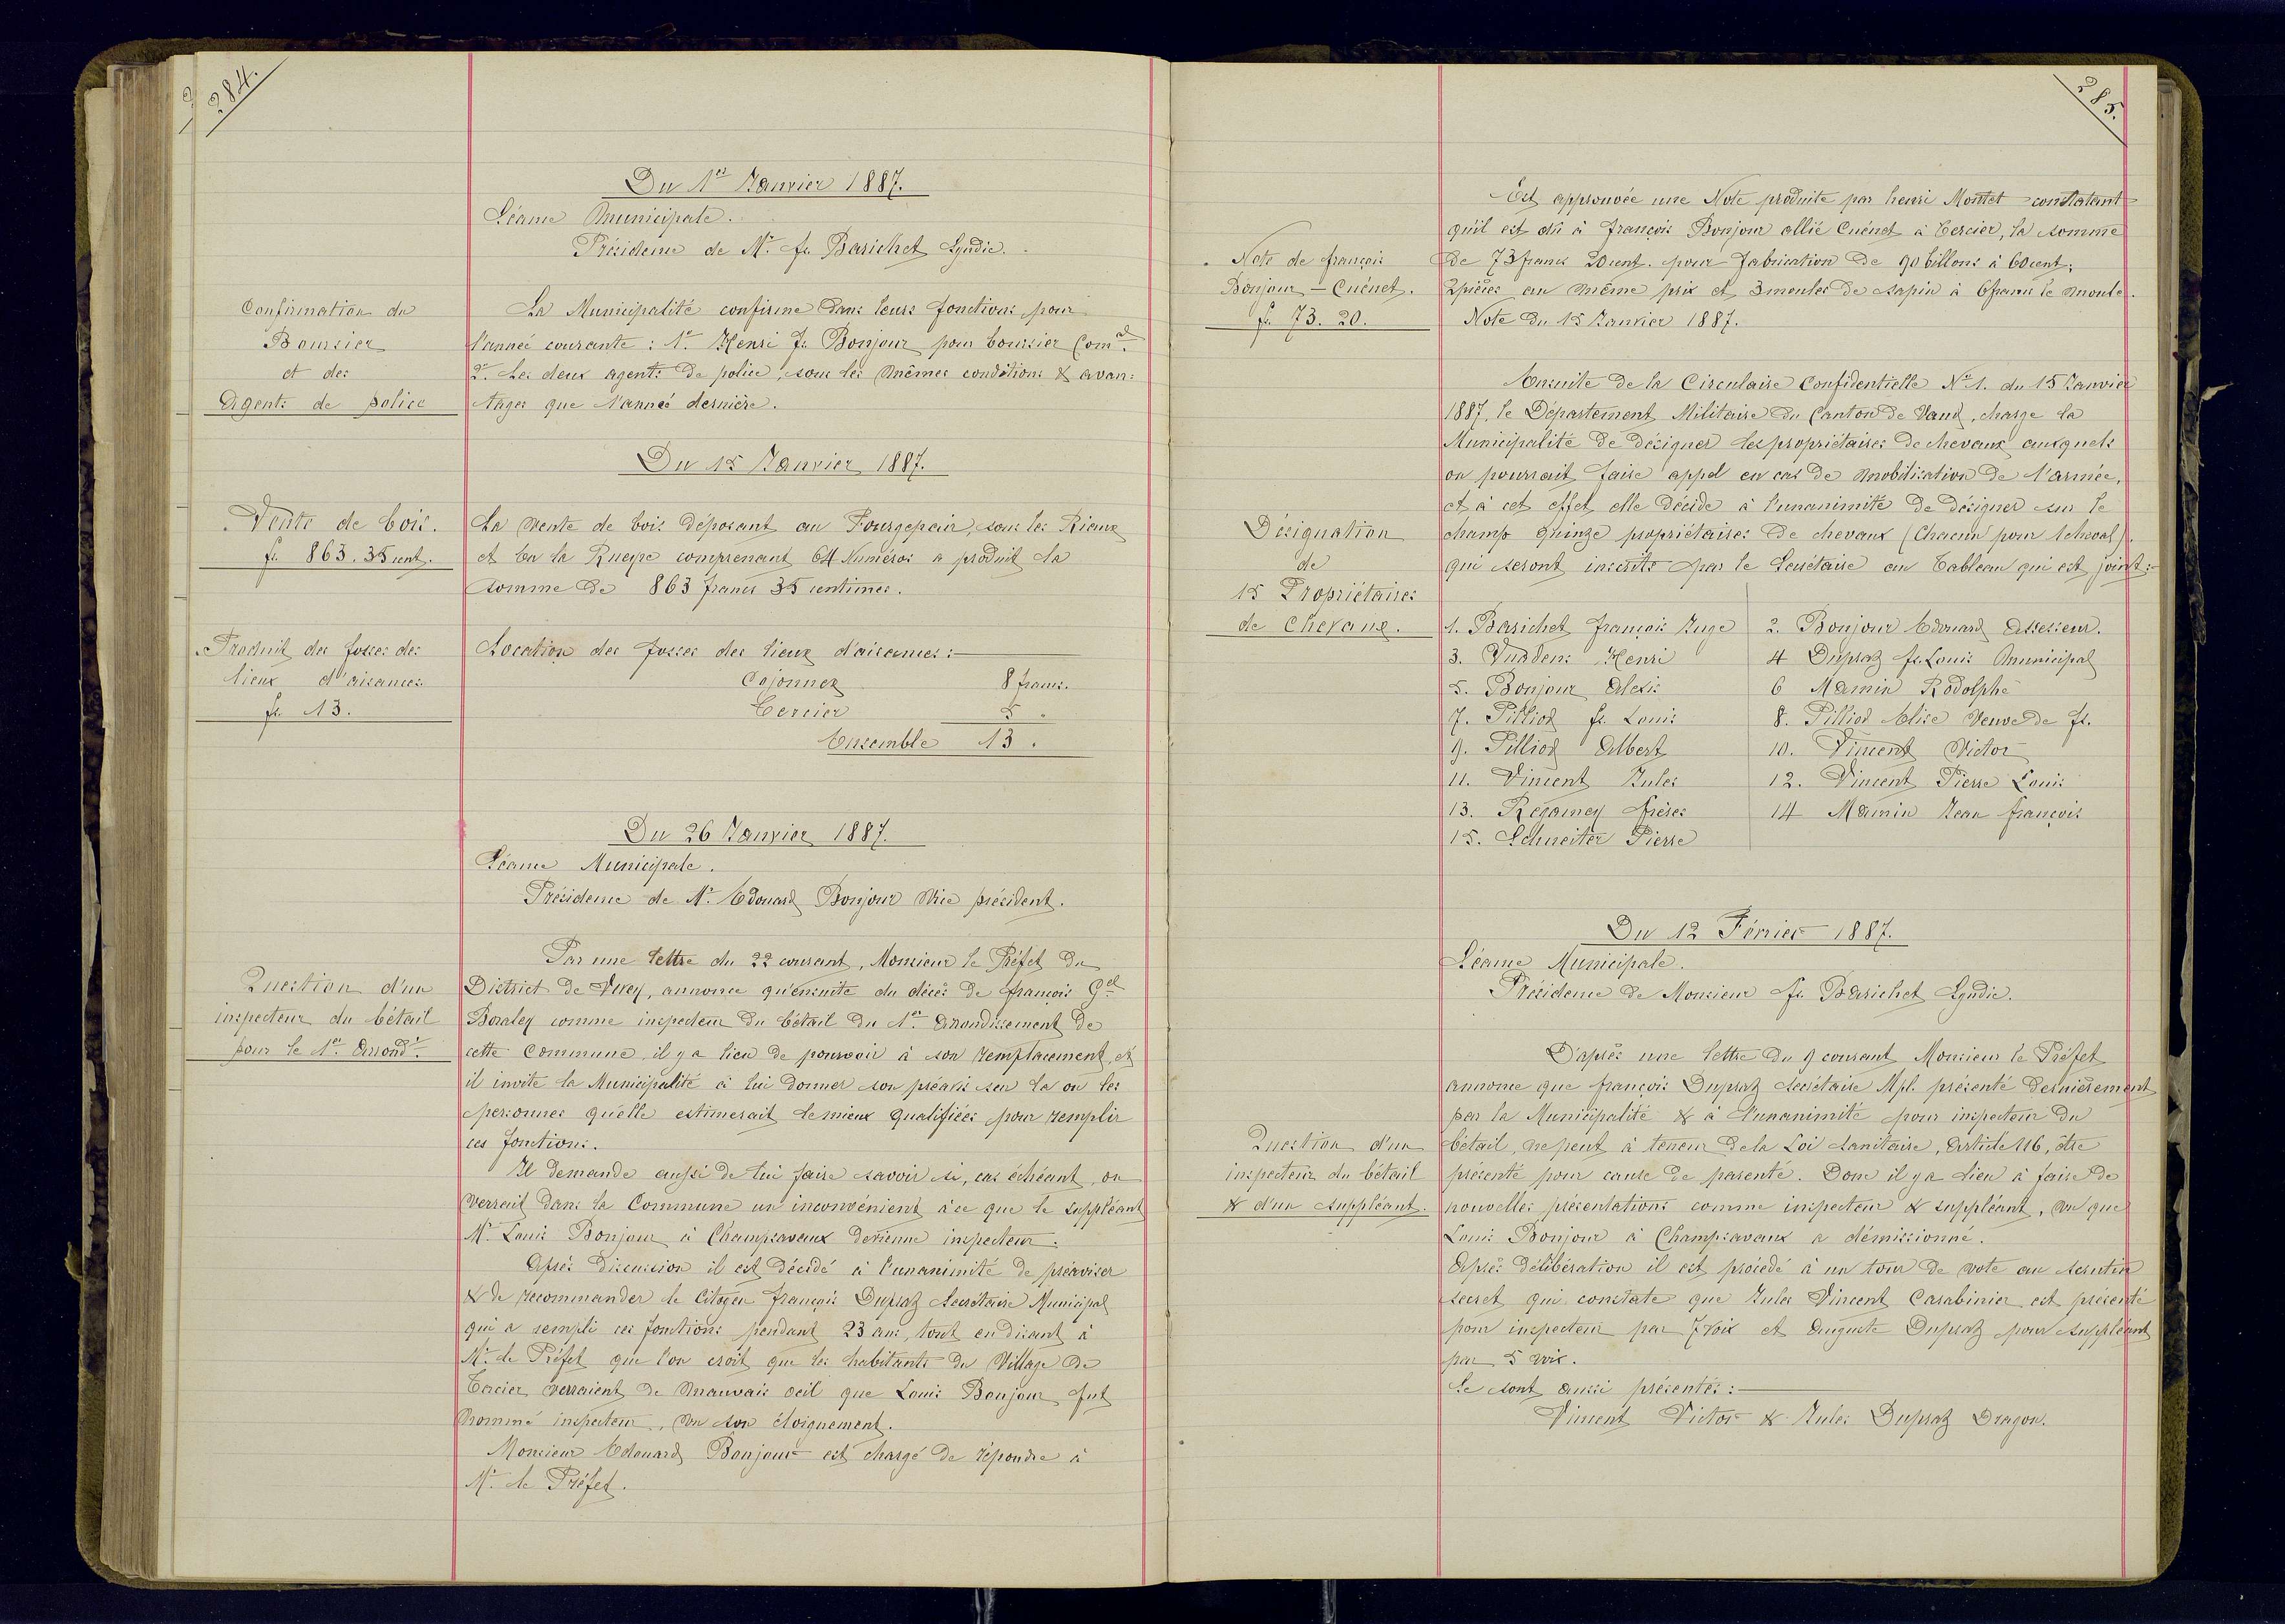 284.
Du 1er Janvier 1887.
Séance Municipale.
Présidence de Mr. fs. Barichet Syndic.
Confirmation du
Boursier
et des
Agents de police
La Municipalité confirme dans leurs fonctions pour
l'année courante : 1º Henri Fs Bonjour pour boursier Comal.
2º. Les deux agents de police, sous les mêmes conditions & avan:
tages que l'année dernière.
Du 15 Janvier 1887.
Vente de bois.
fr. 863.35 cent.
La vente de bois déposant au Fourgepair, sous les Rieux
et En la Rueyre comprenant 64 Numéros a produit la
somme de 863 francs 35 centimes.
Produit des fosses des
lieux d'aisances
fr. 13.
Location des fosses des lieux d'aisances :
Cojonnex 8 francs.
Cercier 5 "
Ensemble 13.
Du 26 Janvier 1887.
Séance Municipale.
Présidence de Mr. Edouard Bonjour Vice président.
Question d'un
inspecteur du bétail
pour le 1er. Arrondt.
Par une lettre du 22 courant, Monsieur le Préfet du
District de Vevey, annonce qu'ensuite du décès de françois Gel
Boraley comme inspecteur du bétail du 1er. Arrondissement de
cette Commune, il y a lieu de pourvoir à son remplacement, et
il invite la Municipalité à lui donner son préavis sur la ou les
personnes qu'elle estimerait le mieux qualifiées pour remplir
ces fonctions.
Il demande aussi de lui faire savoir si, cas échéant, on
verrait dans la Commune un inconvénient à ce que le suppléant
Mr. Louis Bonjour à Champsavaux devienne inspecteur.
Après discussion il est décidé à l'unanimité de préaviser
& de recommander le Citoyen françois Dupraz Secrétaire Municipal
qui a rempli ces fonctions pendant 23 ans, tout en disant à
Mr. le Préfet que l'on croit que les habitants du Village de
Cercier verraient de mauvais oeil que Louis Bonjour fut
nommé inspecteur, vu son éloignement.
Monsieur Edouard Bonjour est chargé de répondre à
Mr. le Préfet.
285.
Note de françois
Bonjour – Cuénet.
fr. 73.20.
Est approuvée une Note produite par henri Montet constatant
qu'il est dû à François Bonjour allié Cuénet à Cercier, la somme
de 73 francs 20 cent. pour fabrication de 90 billons à 60 cent;
2 pièces au même prix et 3 moules de sapin à 6 francs le moule.
Note du 15 Janvier 1887.
Désignation
de
15 Propriétaires
de chevaux.
Ensuite de la Circulaire Confidentielle No 1. du 15 Janvier
1887, le Département Militaire du Canton de Vaud, charge la
Municipalité de désigner les propriétaires de chevaux auxquels
on pourrait faire appel en cas de mobilisation de l'armée,
et à cet effet elle décide à l'unanimité de désigner sur le
champ quinze propriétaires de chevaux (Chacun pour 1 cheval)
qui seront inscrits par le Secrétaire au Tableau qui est joint :
1. Barichet françois Juge 2. Bonjour Edouard Assesseur.
3. Vuadens Henri 4 Dupraz fs. Louis Municipal
5. Bonjour Alexis 6 Mamin Rodolphe
7. Pilliod fs. Louis 8. Pilliod Elise Veuve de fs.
9. Pilliod Albert 10. Vincent Victor
11. Vincent Jules 12. Vincent Pierre Louis
13. Regamey frères 14 Mamin Jean françois
15. Schneiter Pierre
Du 12 Février 1887.
Séance Municipale.
Présidence de Monsieur fs. Barichet Syndic.
Question d'un
inspecteur du bétail
& d'un suppléant.
D'après une lettre du 9 courant Monsieur le Préfet
annonce que françois Dupraz secrétaire Mpl. présenté dernièrement
par la Municipalité & à l'unanimité pour inspecteur du
bétail, ne peut à teneur de la Loi sanitaire, Article 116, être
présenté pour cause de parenté. Donc il y a lieu à faire de
nouvelles présentations comme inspecteur & suppléant, vu que
Louis Bonjour à Champsavaux a démissionné.
Après délibération il est procédé à un tour de vote au scrutin
secret qui constate que Jules Vincent Carabinier est présenté
pour inspecteur par 7 voix et Auguste Dupraz pour suppléant
par 5 voix.
Se sont aussi présentés :
Vincent Victor & Jules Dupraz Dragon.